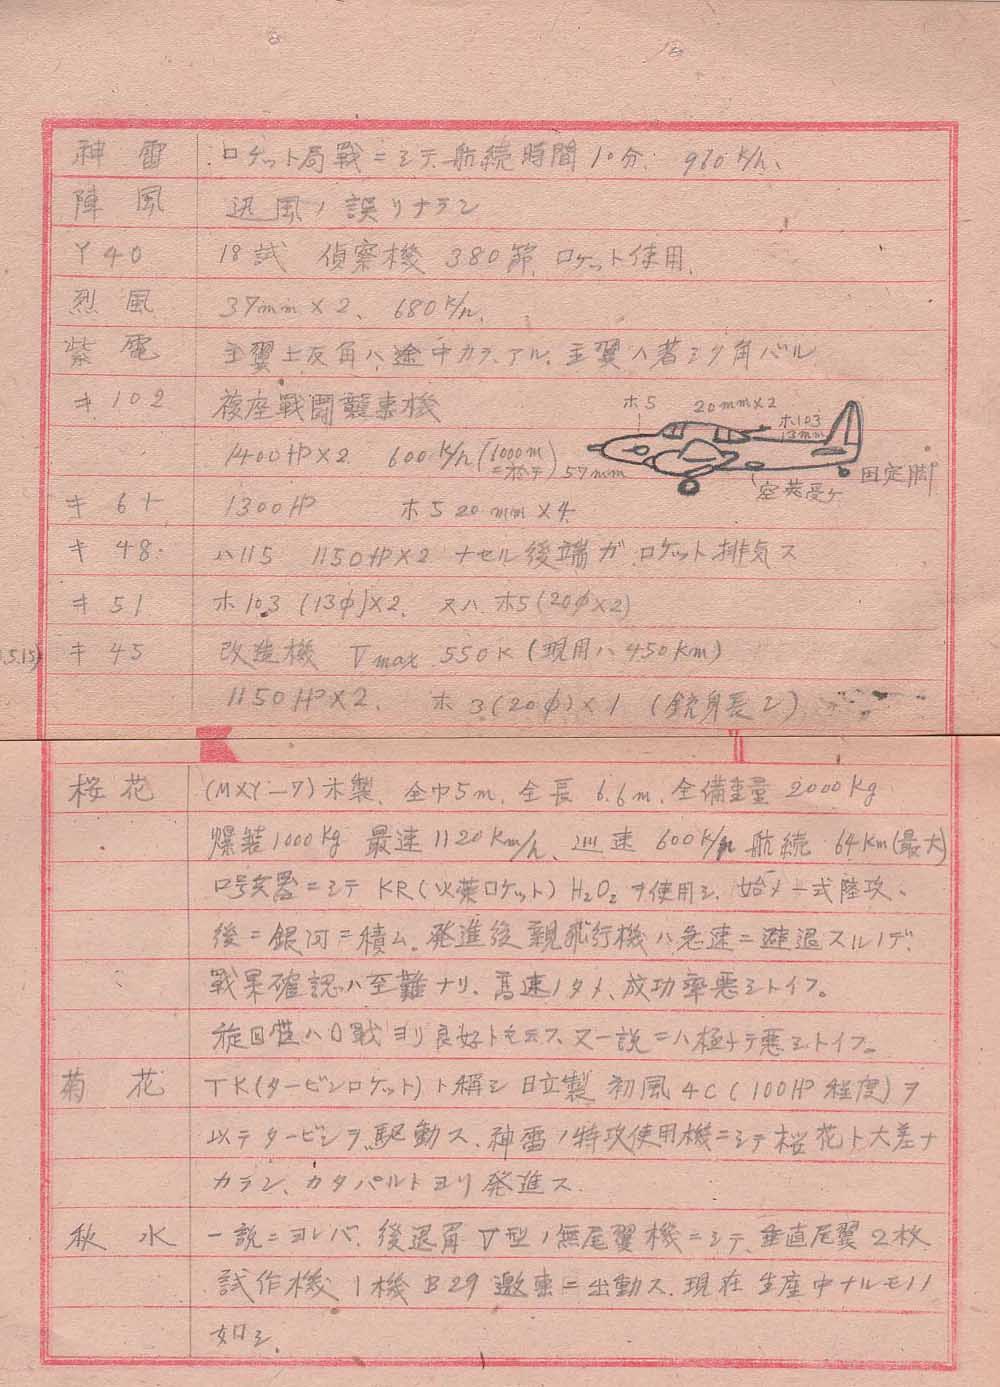 神雷 ロケット局戦ニシテ航続時間10分. 960K/h、
陣風 迅風ノ誤リナラン
Y40 18試 偵察機 380節 ロケット使用.
烈風 37mm×2、680K/h.
紫電 主翼上反角ハ途中カラアル. 主翼ハ著シク角バル
キ102 複座戦闘襲撃機
1400HP×2 600K/h(6000mニ於テ)
ホ5
20mm×2
ホ103
13mm
57mm
固定脚
キ61 1300HP ホ5 20mm×4
キ48. ハ115 1150HP×2 ナセル後端ガロケット排気ス
キ51 ホ103(13φ)×2. 又ハホ5(20φ×2)
キ45 改造機 Vmax 550K(現用ハ450Km)
1150HP×2. ホ3(20φ)×1 (銃身長シ)
.5.15)
桜花 (MXY-7)木製. 全巾5m. 全長6.6m. 全備重量2000Kg
爆装1000Kg 最速1120Km/h、巡速600K/h 航続 64Km(最大)
ロ号装置ニシテKR(火薬ロケット)H₂O₂ヲ使用シ. 始メ一式陸攻、
後ニ銀河ニ積ム。発進後親飛行機ハ急速ニ避退スルノデ.
戦果確認ハ至難ナリ、高速ノタメ、成功率悪シトイフ。
旋回性ハ0戦ヨリ良好トモ云フ、又一説ニハ極メテ悪シトイフ。
菊花 TK(タービンロケット)ト稱シ日立製 初風4C(100HP程度)ヲ
以テタービンヲ駆動ス. 神雷ノ特攻使用機ニシテ桜花ト大差ナ
カラン、カタパルトヨリ発進ス.
秋水 一説ニヨレバ. 後退角V型ノ無尾翼機ニシテ. 垂直尾翼2枚
試作機1機B29邀撃ニ出動ス. 現在生産中ナルモノノ
如シ.